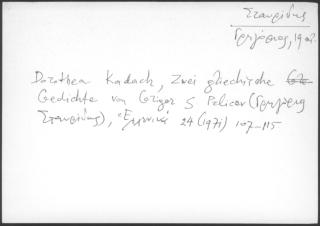 Σταυρίδης
Γρηγόριος, 19ος
Dorothea Kadach, Zwei griechische
Gedichte von Grigor S Pǎrličev (Γρηγόριος
Σταυρίδης), "Ελληνικά 24 (1971) 107-115